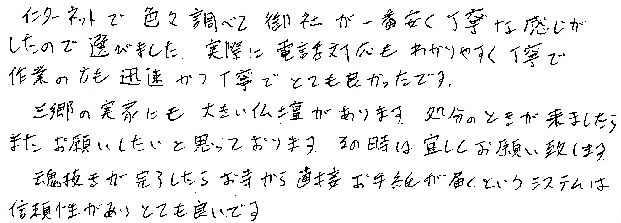 インターネットで色々調べて御社が一番安く丁寧な感じが
したので選びました。実際に電話対応もわかりやすく丁寧で
作業の方も迅速かつ丁寧でとても良かったです。
三郷の実家にも大きい仏壇があります。処分のときが来ましたら
またお願いしたいと思っております。その時は宜しくお願い致します。
魂抜きが完了したらお寺から直接お手紙が届くというシステムは
信頼性がありとても良いです